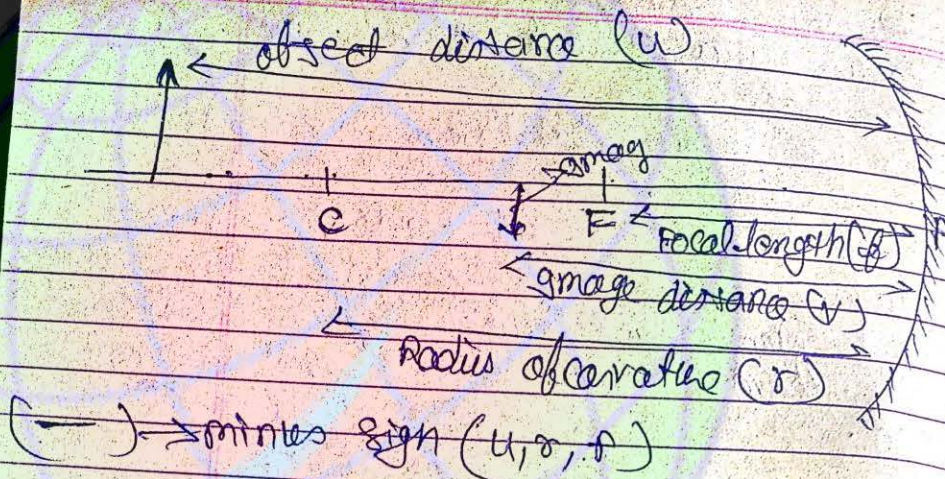 object distance (u)
image
C
F
P
Focal length (f)
image distance (v)
Radius of curvature (r)
(—) → minus sign (u, r, f)